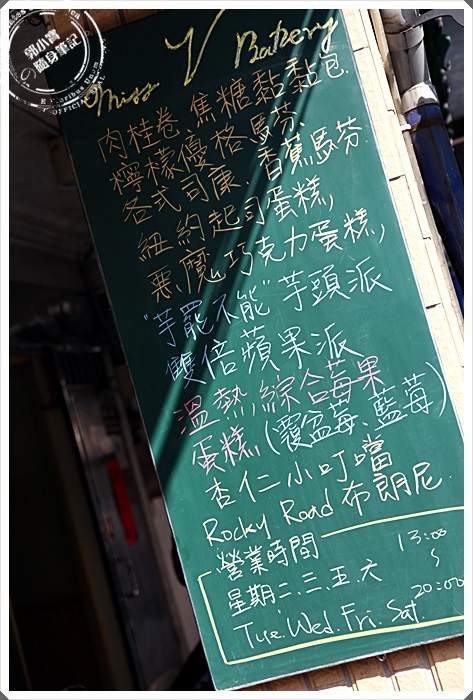 郭小寶
の隨身筆記
Miss V Bakery
肉桂卷 焦糖黏黏包
檸檬優格馬芬
各式司康、香蕉馬芬
紐約起司蛋糕,
惡魔巧克力蛋糕,
"芋罷不能"芋頭派
雙倍蘋果派
溫熱綜合莓果
蛋糕(覆盆莓、藍莓)
杏仁小叮噹
Rocky Road 布朗尼
營業時間
星期二.三.五.六 13:00
~
Tue.Wed.Fri.Sat. 20:00